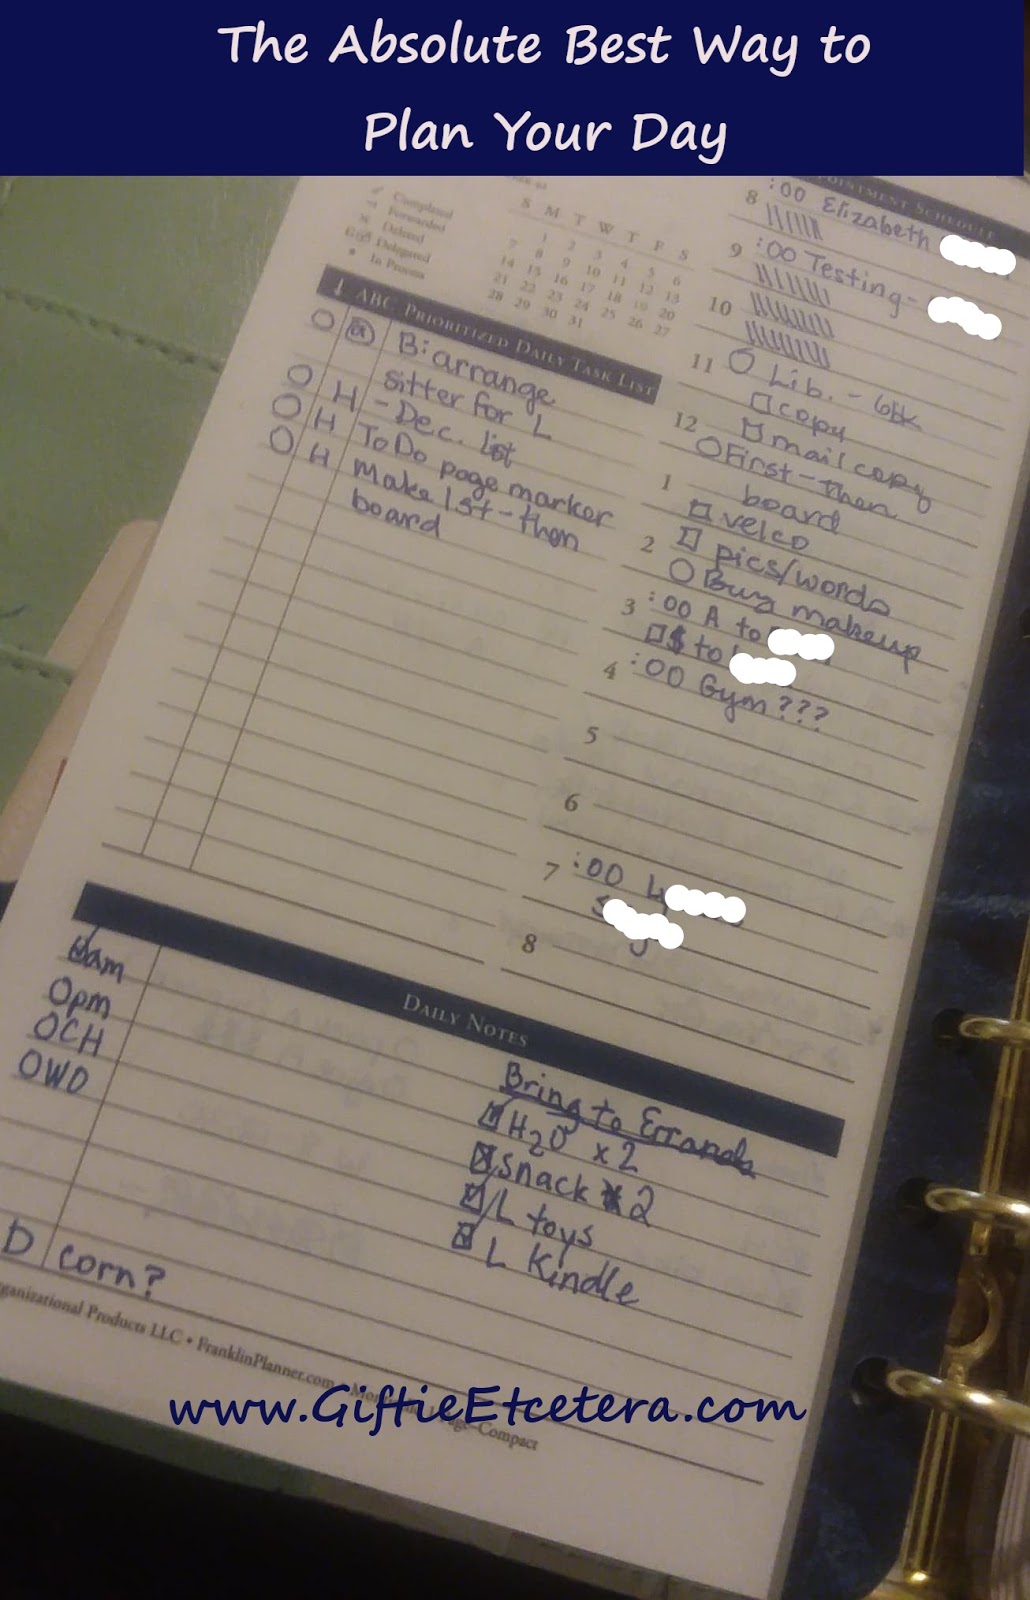 The Absolute Best Way to
Plan Your Day
Completed
Forwarded
Deleted
Delegated
In Process
S M T W T F S
1 2 3 4 5 6
7 8 9 10 11 12 13
14 15 16 17 18 19 20
21 22 23 24 25 26 27
28 29 30 31
↓ ABC PRIORITIZED DAILY TASK LIST
a B: arrange
sitter for L
H - Dec. list
H ToDo page marker
H Make 1st-then
board
APPOINTMENT SCHEDULE
8 :00 Elizabeth
9 :00 Testing-
10
11 Lib. -
copy
12 mail copy
First-then
1 board
velco
2 pics/words
Buy makeup
3 :00 A to
$ to
4 :00 Gym???
5
6
7 :00
8
DAILY NOTES
am
pm
CH
WO
D corn?
Bring to Errands
H2O x2
snack x2
L toys
L Kindle
Organizational Products LLC • FranklinPlanner.com
Compact
www.GiftieEtcetera.com